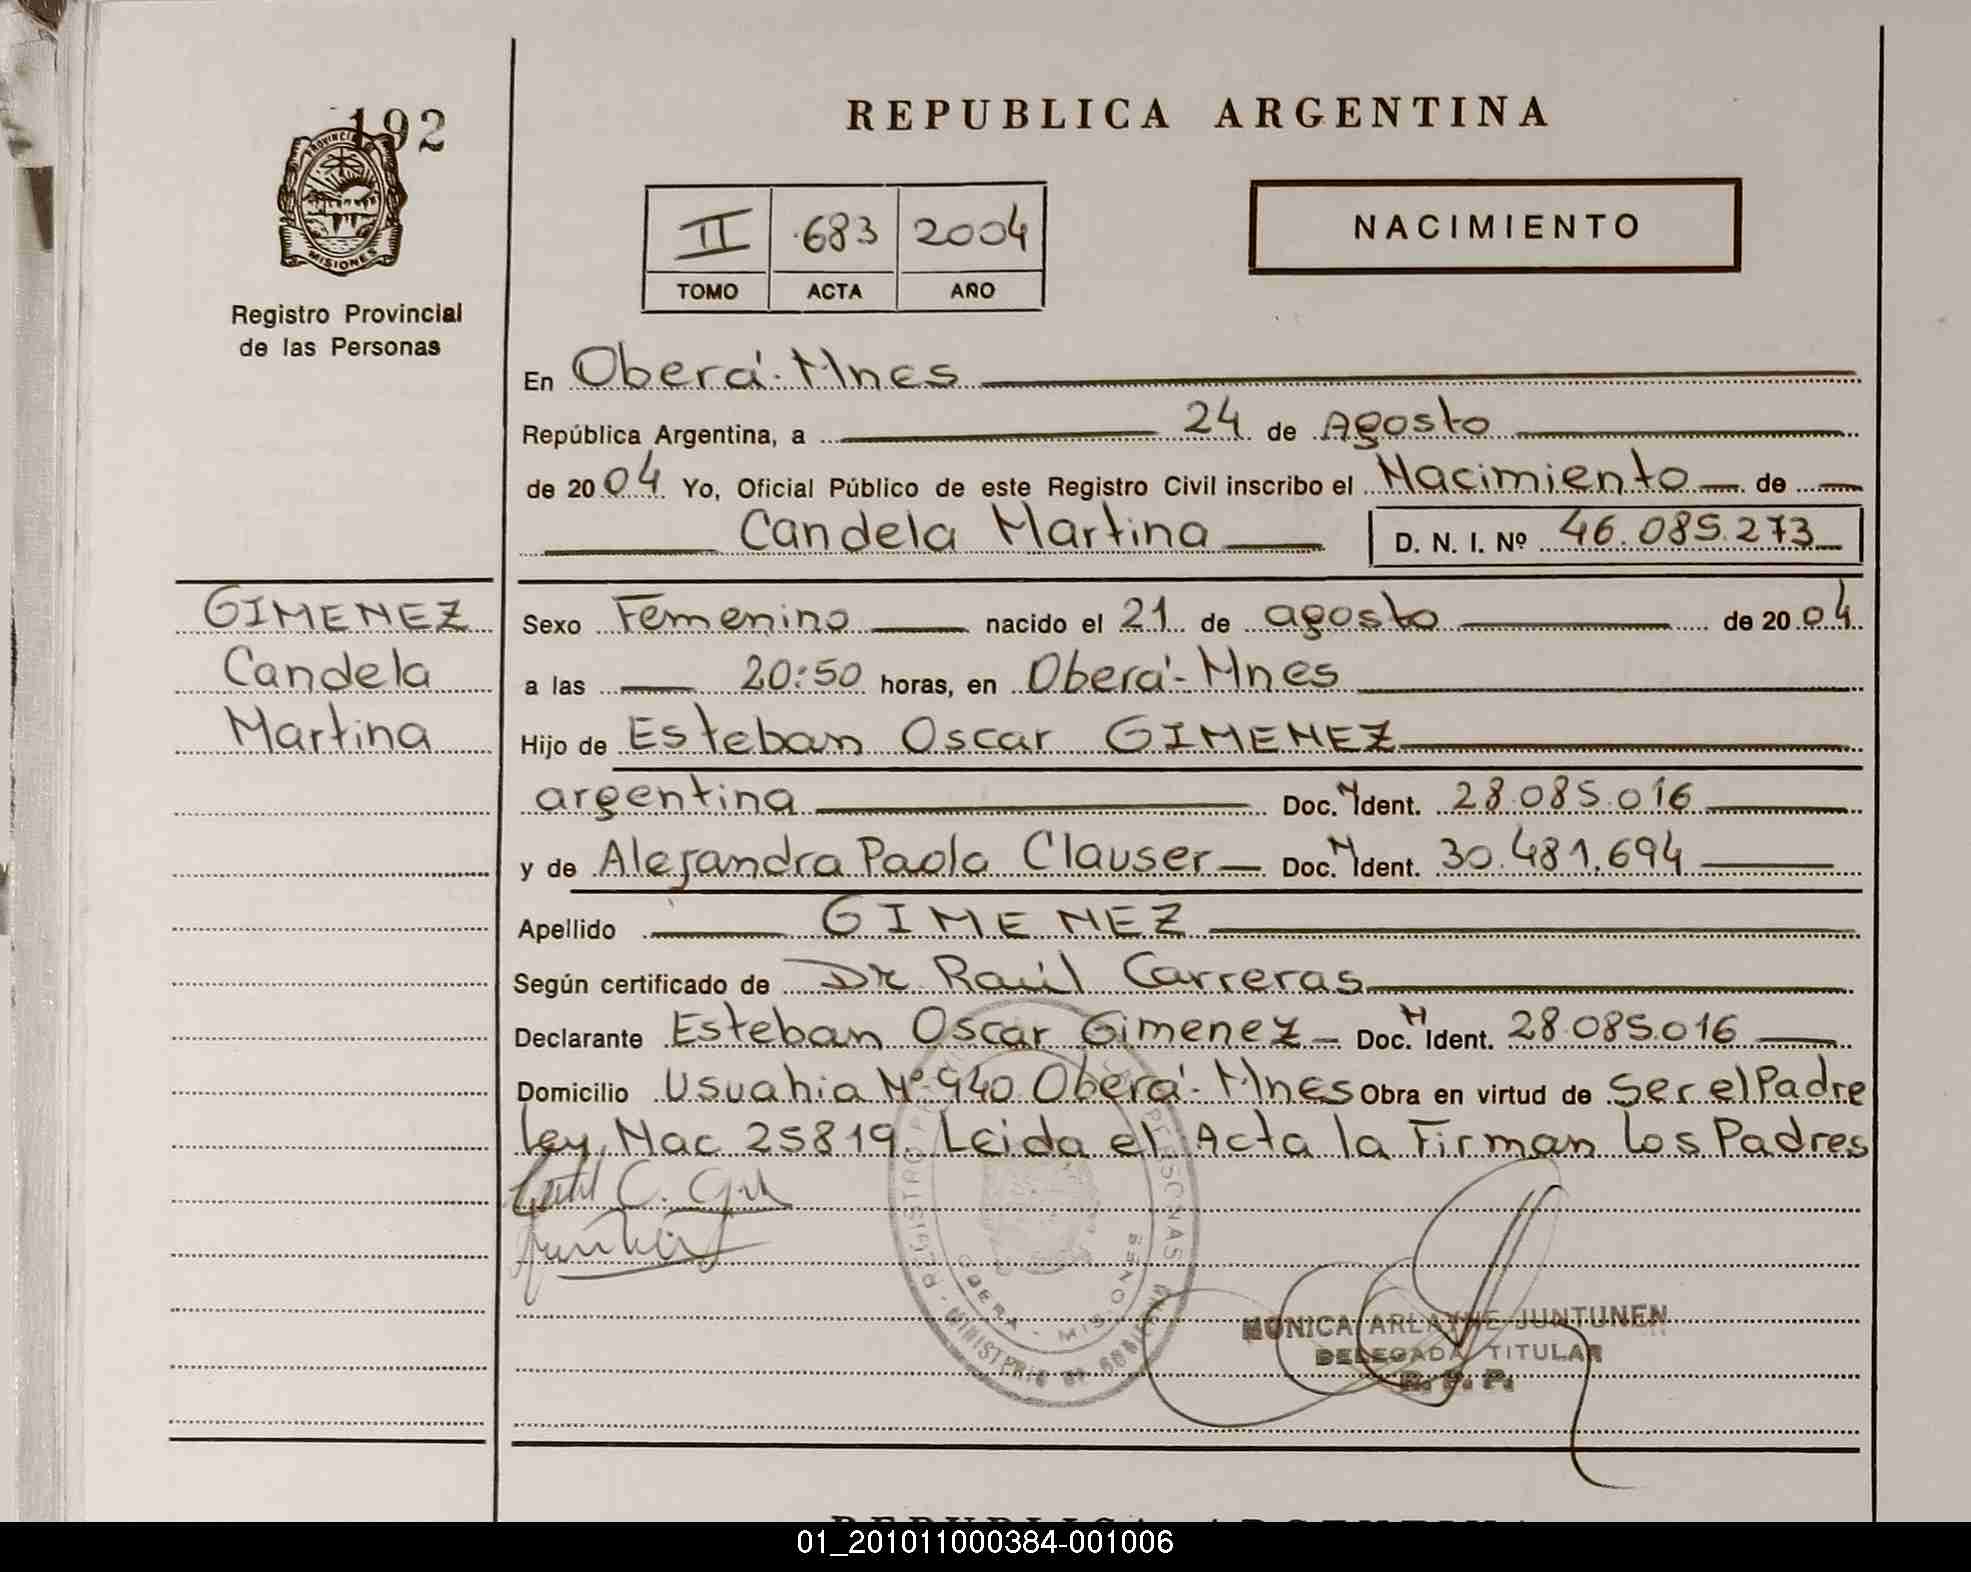 192
PROVINCIA
MISIONES
Registro Provincial
de las Personas
GIMENEZ
Candela
Martina
REPUBLICA ARGENTINA
II 683 2004
TOMO ACTA AÑO
NACIMIENTO
En Oberá-Mnes
República Argentina, a 24 de Agosto
de 2004 Yo, Oficial Público de este Registro Civil inscribo el Nacimiento de
Candela Martina D. N. I. Nº 46.085.273
Sexo Femenino nacido el 21 de agosto de 2004
a las 20:50 horas, en Oberá-Mnes
Hijo de Esteban Oscar GIMENEZ
argentina Doc. N Ident. 28.085.016
y de Alejandra Paola Clauser Doc. N Ident. 30.481.694
Apellido GIMENEZ
Según certificado de Dr Raúl Carreras
Declarante Esteban Oscar Gimenez Doc. N Ident. 28.085.016
Domicilio Usuahia Nº 940 Oberá-Mnes Obra en virtud de Ser el Padre
Ley Nac 25819. Leida el Acta la Firman los Padres
MONICA ARLAYNE JUNTUNEN
DELEGADA TITULAR
R. P. P.
REPUBLICA ARGENTINA
01_201011000384-001006